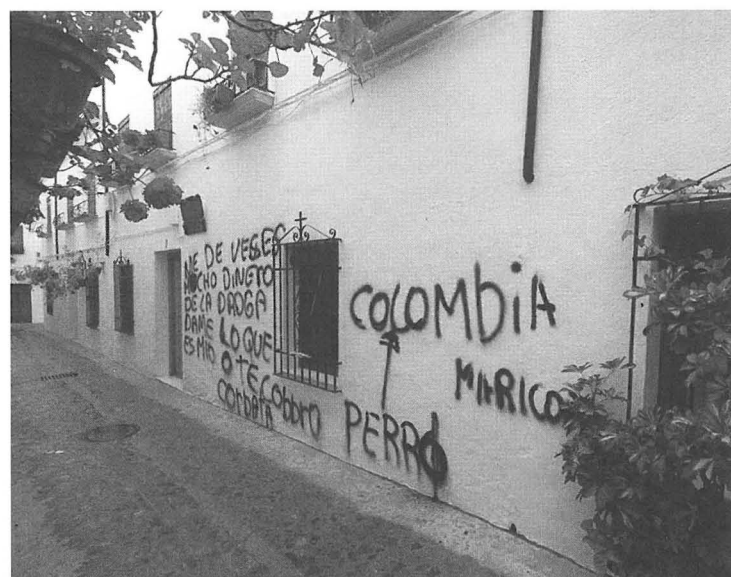 ME DE VESSES
MUCHO DINETO
DE LA DROGA
DAME LO QUE
ES MIO O TE CObbRO
CORbATA
COLOMbiA
MARICO
PERRO